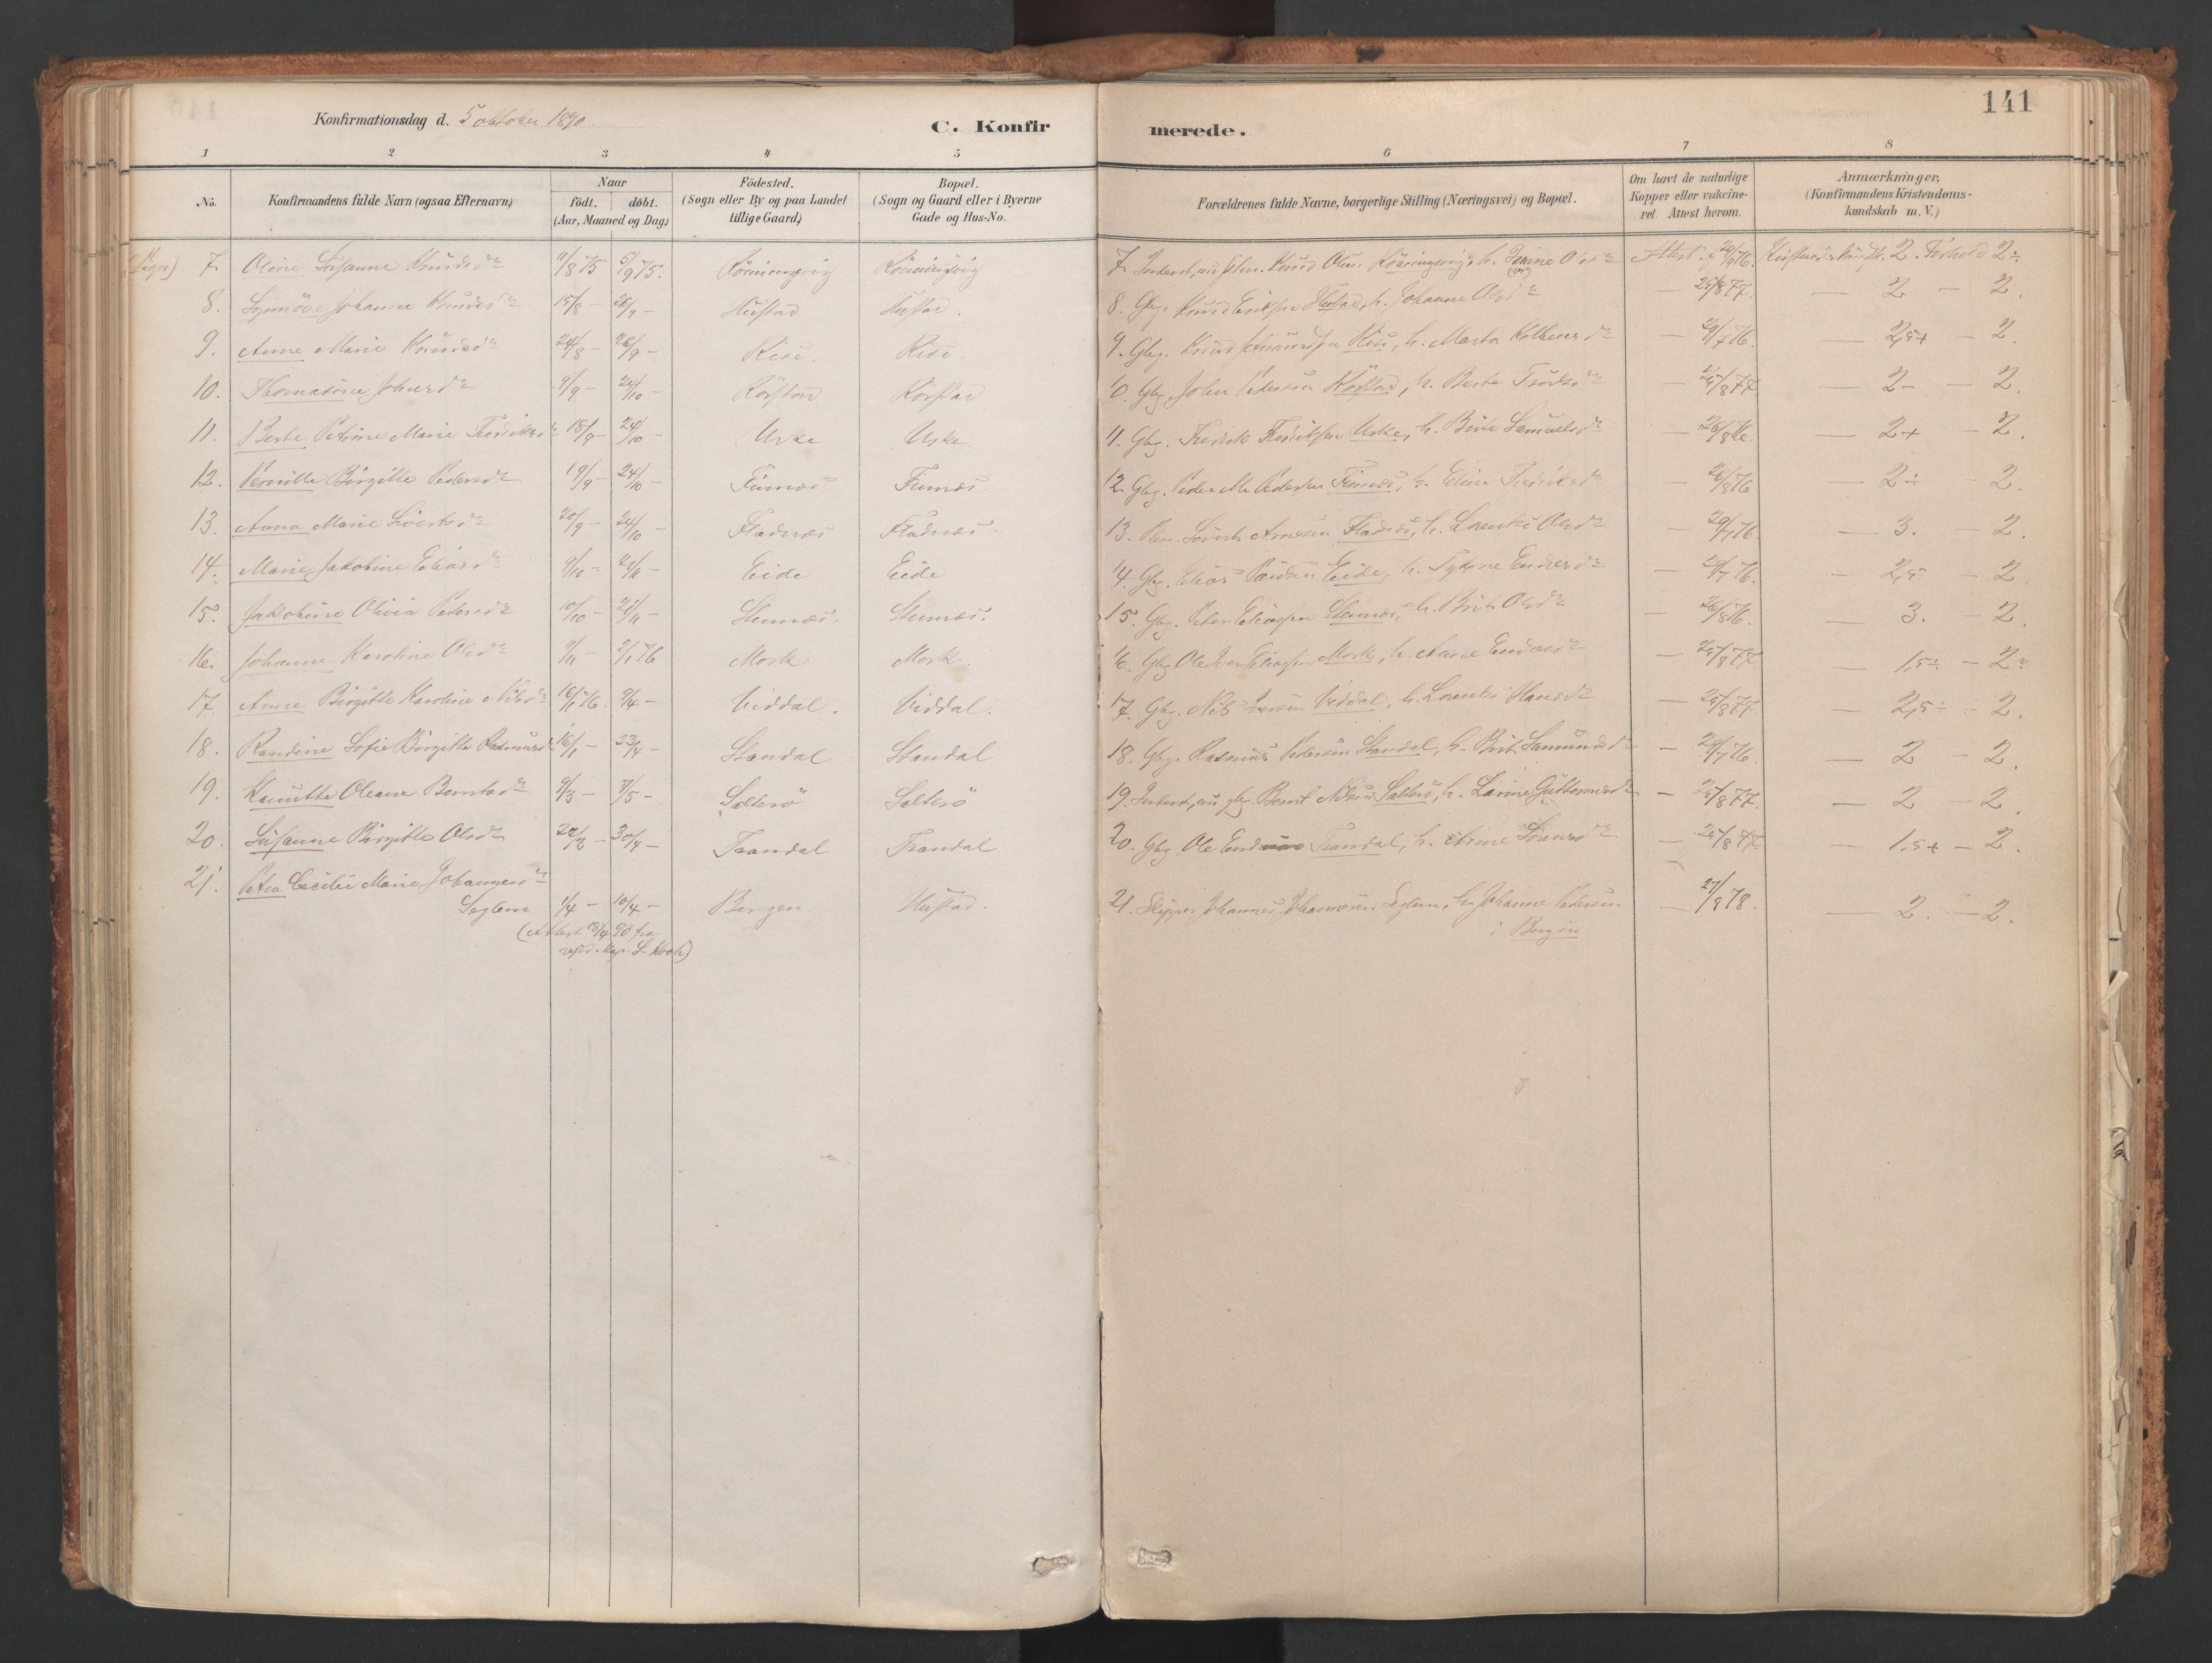 141
Konfirmationsdag d. 5 oktober 1890.
C. Konfirmerede.
1 2 3 4 5 6 7 8
No.
Konfirmandens fulde Navn (ogsaa Efternavn)
Naar
födt. döbt.
(Aar, Maaned og Dag)
Födested.
(Sogn eller By og paa Landet
tillige Gaard)
Bopæl.
(Sogn og Gaard eller i Byerne
Gade og Hus-No.
Forældrenes fulde Navne, borgerlige Stilling (Næringsvei) og Bopæl.
Om havt de naturlige
Kopper eller vakcine-
ret. Attest herom.
Anmærkninger,
(Konfirmandens Kristendoms-
kundskab m. V.)
(Piger) 7. Oline Susanne Knudsdr 11/8 75 5/9 75. Rönningsvig Rönningsvig 7. Knud Olsen Rönningsvig, h. Oldr Attest 2. Forhold 2÷
8. Synnöve Johanne Knudsdr 15/8 – 26/9 – Hustad Hustad. 8. Gbg. Knud Eriksen Hustad, h. Johanne Olsdr – 25/8 77. – 2 – 2.
9. Anne Marie Knudsdr 24/8 – 26/9 – Rise. Rise. 9. Gbg. Knud Rise, h. Marta – 29/7 76. – 2,5+ – 2.
10. Thomasine Johnsdr 9/9 – 24/10 – Körstad Körstad 10. Gbg. John Petersen Körstad, h. Berte – 25/8 77. – 2 – – 2.
11. Berte Petrine Marie Fredriksdr 18/9 – 24/10 – Urke Urke. 11. Gbg. Fredrik Fredriksen Urke, h. Berte Samuelsdr – 26/8 76. – 2+ – 2.
12. Pernille Birgitte Pedersdr 19/9 – 24/10 – Finnæs Finnæs. 12. Gbg. Peder Pedersen Finnæs, h. Eline Fredriksdr – 26/8 76 – 2÷ – 2.
13. Anna Marie Sivertsdr 20/9 – 24/10 – Fladnæs Fladnæs. 13. Sivert Arnesen Fladnæs, h. Lorentse Olsdr – 29/7 76. – 3. – 2.
14. Marie Jakobine Eliasdr 9/10 – 21/11 – Eide Eide 14. Gbg. Elias Eide, h. Endresdr – 29/7 76. – 2,5 – 2
15. Jakobine Olivia Petersdr 10/10 – 21/11 – Stennæs. Stennæs. 15. Gbg. Peter Eliassen Stennæs, h. Berte Olsdr – 26/8 76. – 3. – 2.
16. Johanne Karoline Olsdr 9/11 – 2/1 76 Mork Mork. 16. Gbg. Ole Iver Eliassen Mork, h. Anne Endresdr – 25/8 77 – 1,5÷ – 2÷
17. Anne Birgitte Karoline Nilsdr 16/1 76. 9/4 – Viddal. Viddal. 17. Gbg. Nils Iversen Viddal, h. Lorentse Hansdr – 25/8 77 – 2,5÷ – 2.
18. Randine Sofie Birgitte Rasmusdr 16/1 – 23/4 – Standal Standal 18. Gbg. Rasmus Petersen Standal, h. Brit Samundsdr – 29/7 76. – 2 – 2.
19. Kanutte Oleane Berntsdr 9/3 – 7/5 – Salterö Salterö 19. Bernt Nilsen Salterö, h. Larine Guttormsdr – 25/8 77. – 2 – 2.
20. Susanne Birgitte Olsdr 22/3 – 30/4 – Trandal Trandal 20. Gbg. Ole Trandal, h. Anne Iversdr – 25/8 77. – 1,5+ – 2.
21. Petra Cecilie Marie Johannesdr
Seglem 1/4 – 10/4 – Bergen Hustad. 21. Skipper Johannes Johannesen Seglem, h. Johanne Pedersen – 27/9 78. – 2. – 2.
i Bergen
(Attest 19/4 90 fra
resid. Kap. S. Koch)